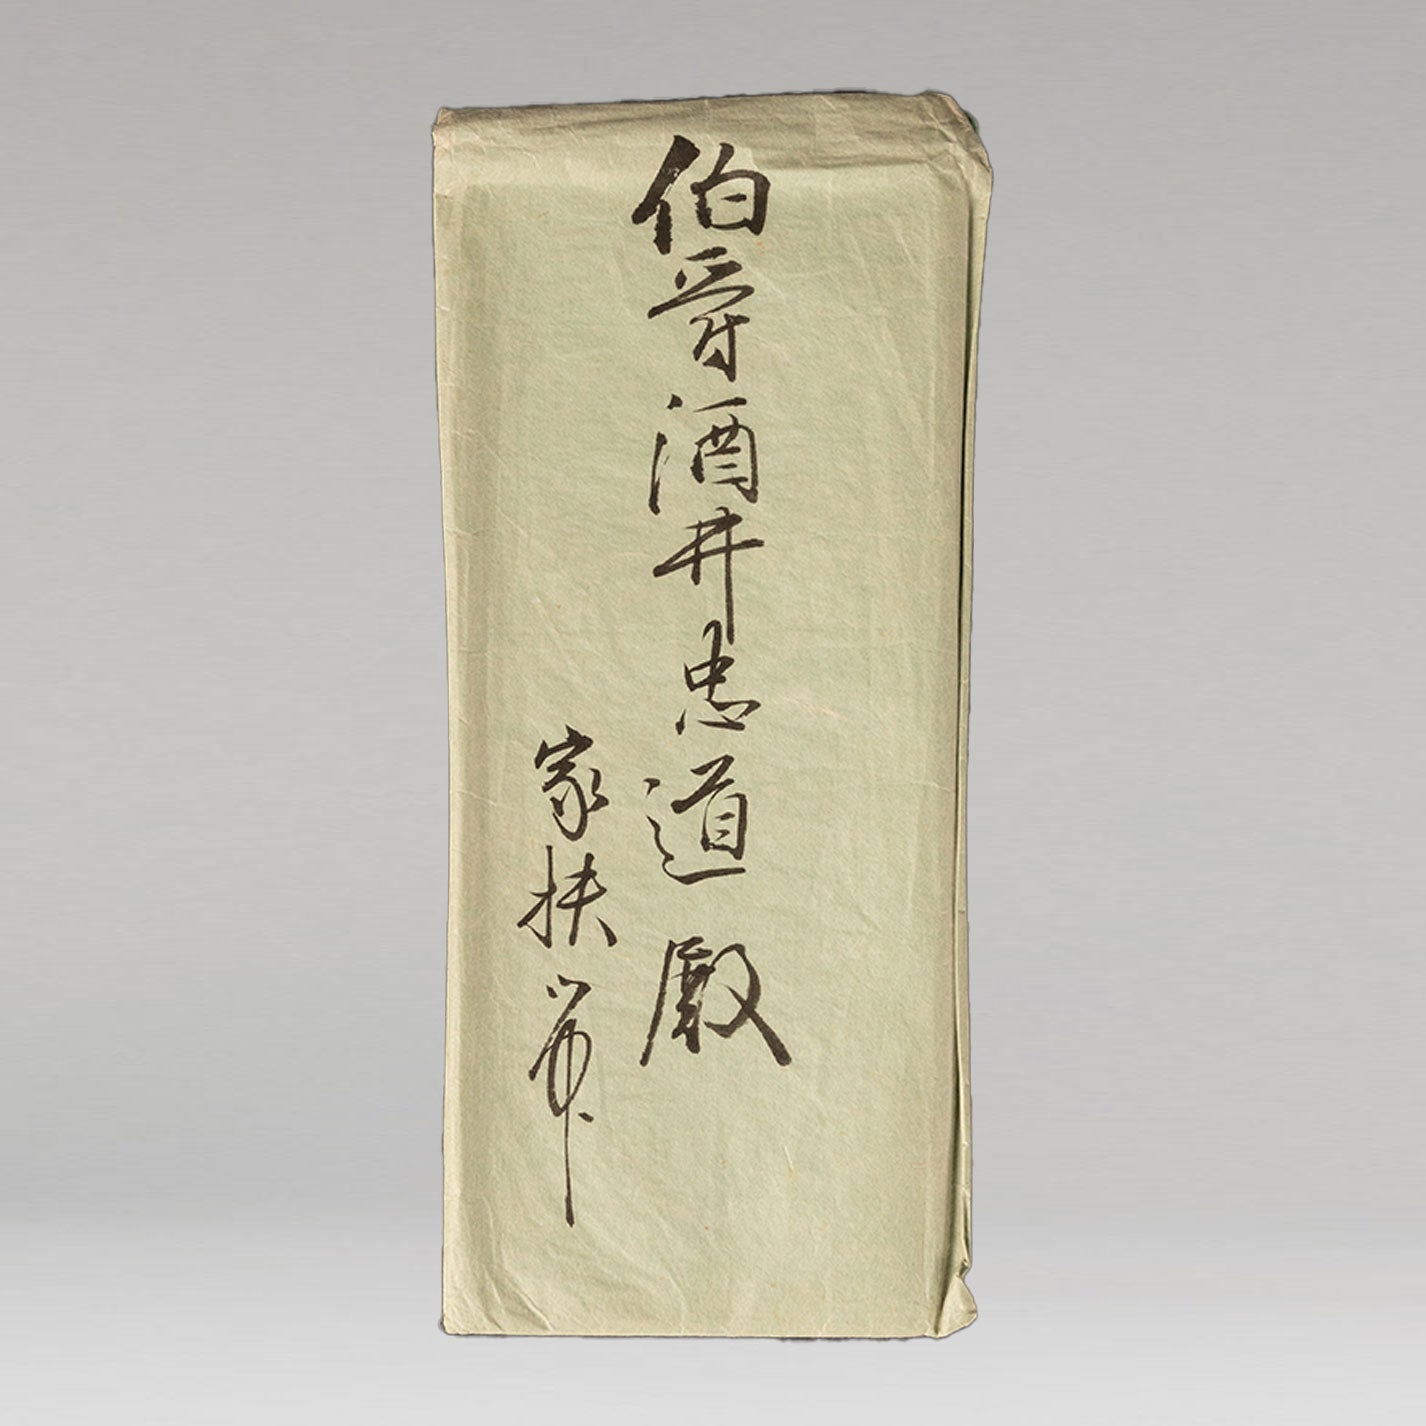 伯爵酒井忠道殿
家扶御中